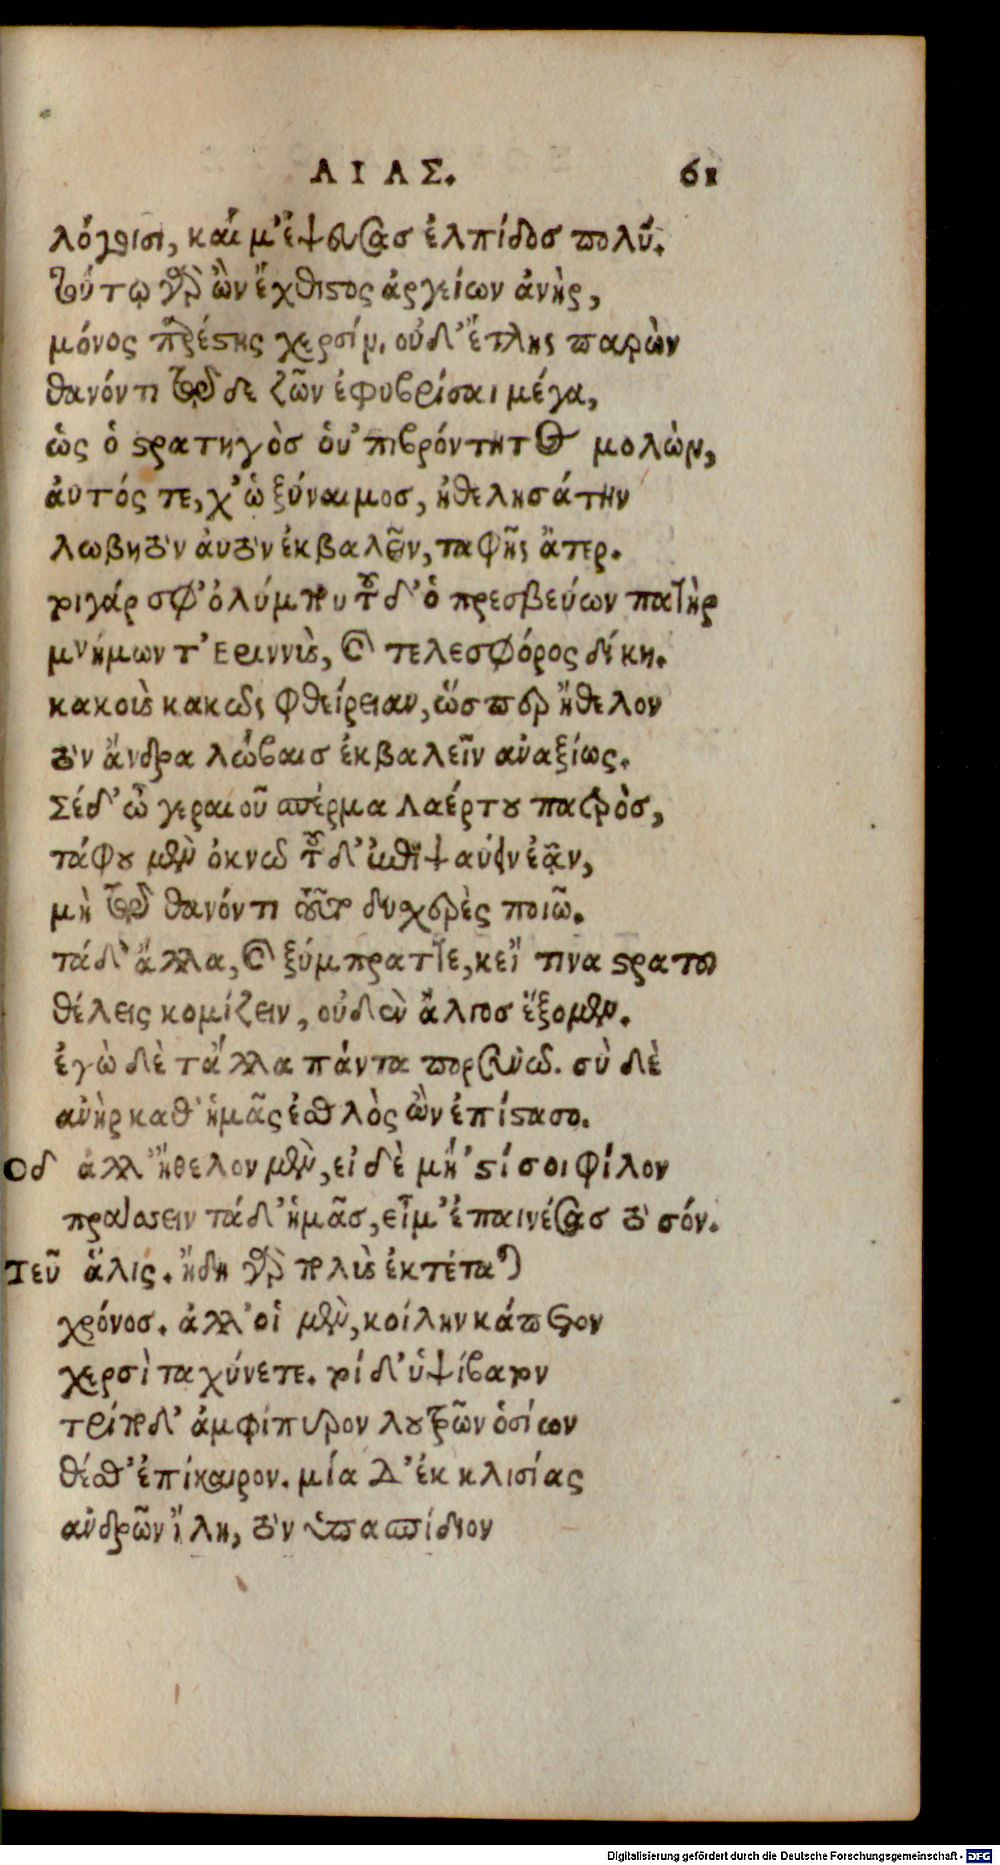 ΑΙΑΣ. 61
λόγοισι, καί μ' ἔψευσας ἐλπίδος πολύ.
τούτῳ γὰρ ὢν ἔχθιστος ἀργείων ἀνὴρ,
μόνος παρέστης χερσίν. οὐδ' ἔτλης παρὼν
θανόντι τῷδε ζῶν ἐφυβρίσαι μέγα,
ὡς ὁ στρατηγὸς οὑ'πιβρόντητος μολὼν,
ἀυτός τε, χ' ὡ ξύναιμος, ἠθελησάτην
λωβητὸν ἀυτὸν ἐκβαλεῖν, ταφῆς ἄτερ.
τοιγάρ σφ' ὀλύμπου τοῦδ' ὁ πρεσβεύων πατὴρ
μνήμων τ' Εριννὺς, καὶ τελεσφόρος δίκη.
κακοὺς κακῶς φθείρειαν, ὥσπερ ἤθελον
τὸν ἄνδρα λώβαις ἐκβαλεῖν ἀναξίως.
Σέ δ' ὦ γεραιοῦ σπέρμα Λαέρτου πατρὸς,
τάφου μὲν ὀκνῶ τοῦδ' ἐπιψαύειν ἐᾷν,
μὴ τῷ θανόντι τοῦτο δυχερὲς ποιῶ.
τά δ' ἄλλα, καὶ ξύμπραττε, κεἴ τινα στρατοῦ
θέλεις κομίζειν, οὐδὲν ἄλγος ἕξομεν.
ἐγὼ δὲ τἄλλα πάντα πορσυνῶ. σὺ δὲ
ἀνὴρ καθ' ἡμᾶς ἐσθλὸς ὢν ἐπίστασο.
Οδ ἀλλ' ἤθελον μὲν, εἰ δὲ μή 'στί σοι φίλον
πράσσειν τά δ' ἡμᾶς, εἶμ' ἐπαινέσας τὸ σόν.
Τεῦ ἅλις. ἤδη γὰρ πολὺς ἐκτέταται
χρόνος. ἀλλ' οἱ μὲν, κοίλην κάπετον
χερσὶ ταχύνετε. τοί δ' ὑψίβατον
τρίποδ' ἀμφίπυρον λουτρῶν ὁσίων
θέσθ' ἐπίκαιρον. μία δ' ἐκ κλισίας
ἀνδρῶν ἴλη, τὸν ὑπασπίδιον
Digitalisierung gefördert durch die Deutsche Forschungsgemeinschaft - DFG